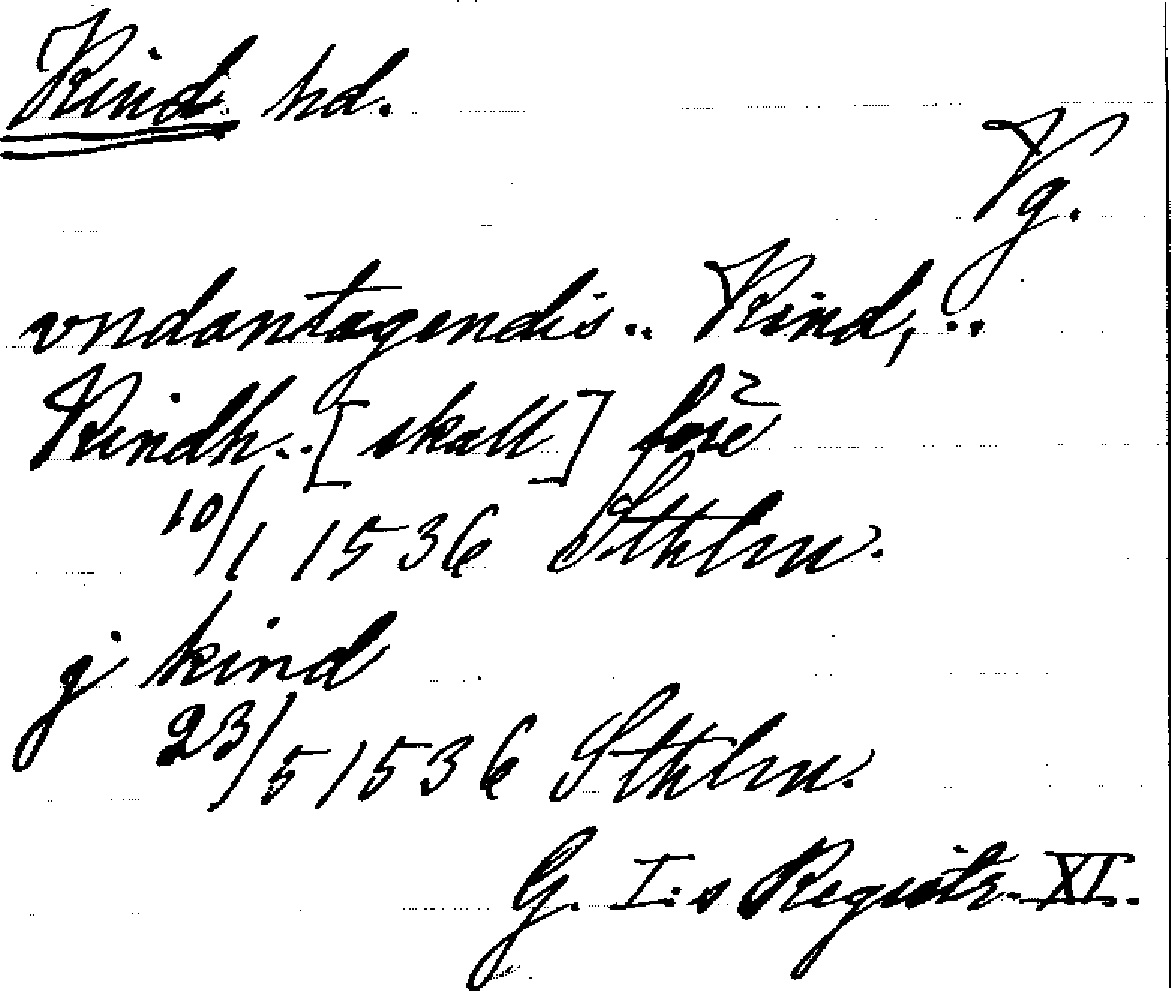 Kind hd.
Vg.
vndantagendis.. Kind,..
Kindh..[skall]
10/1 1536 Sthlm.
j kind
23/5 1536 Sthlm.
G. I:s Registr. XI.